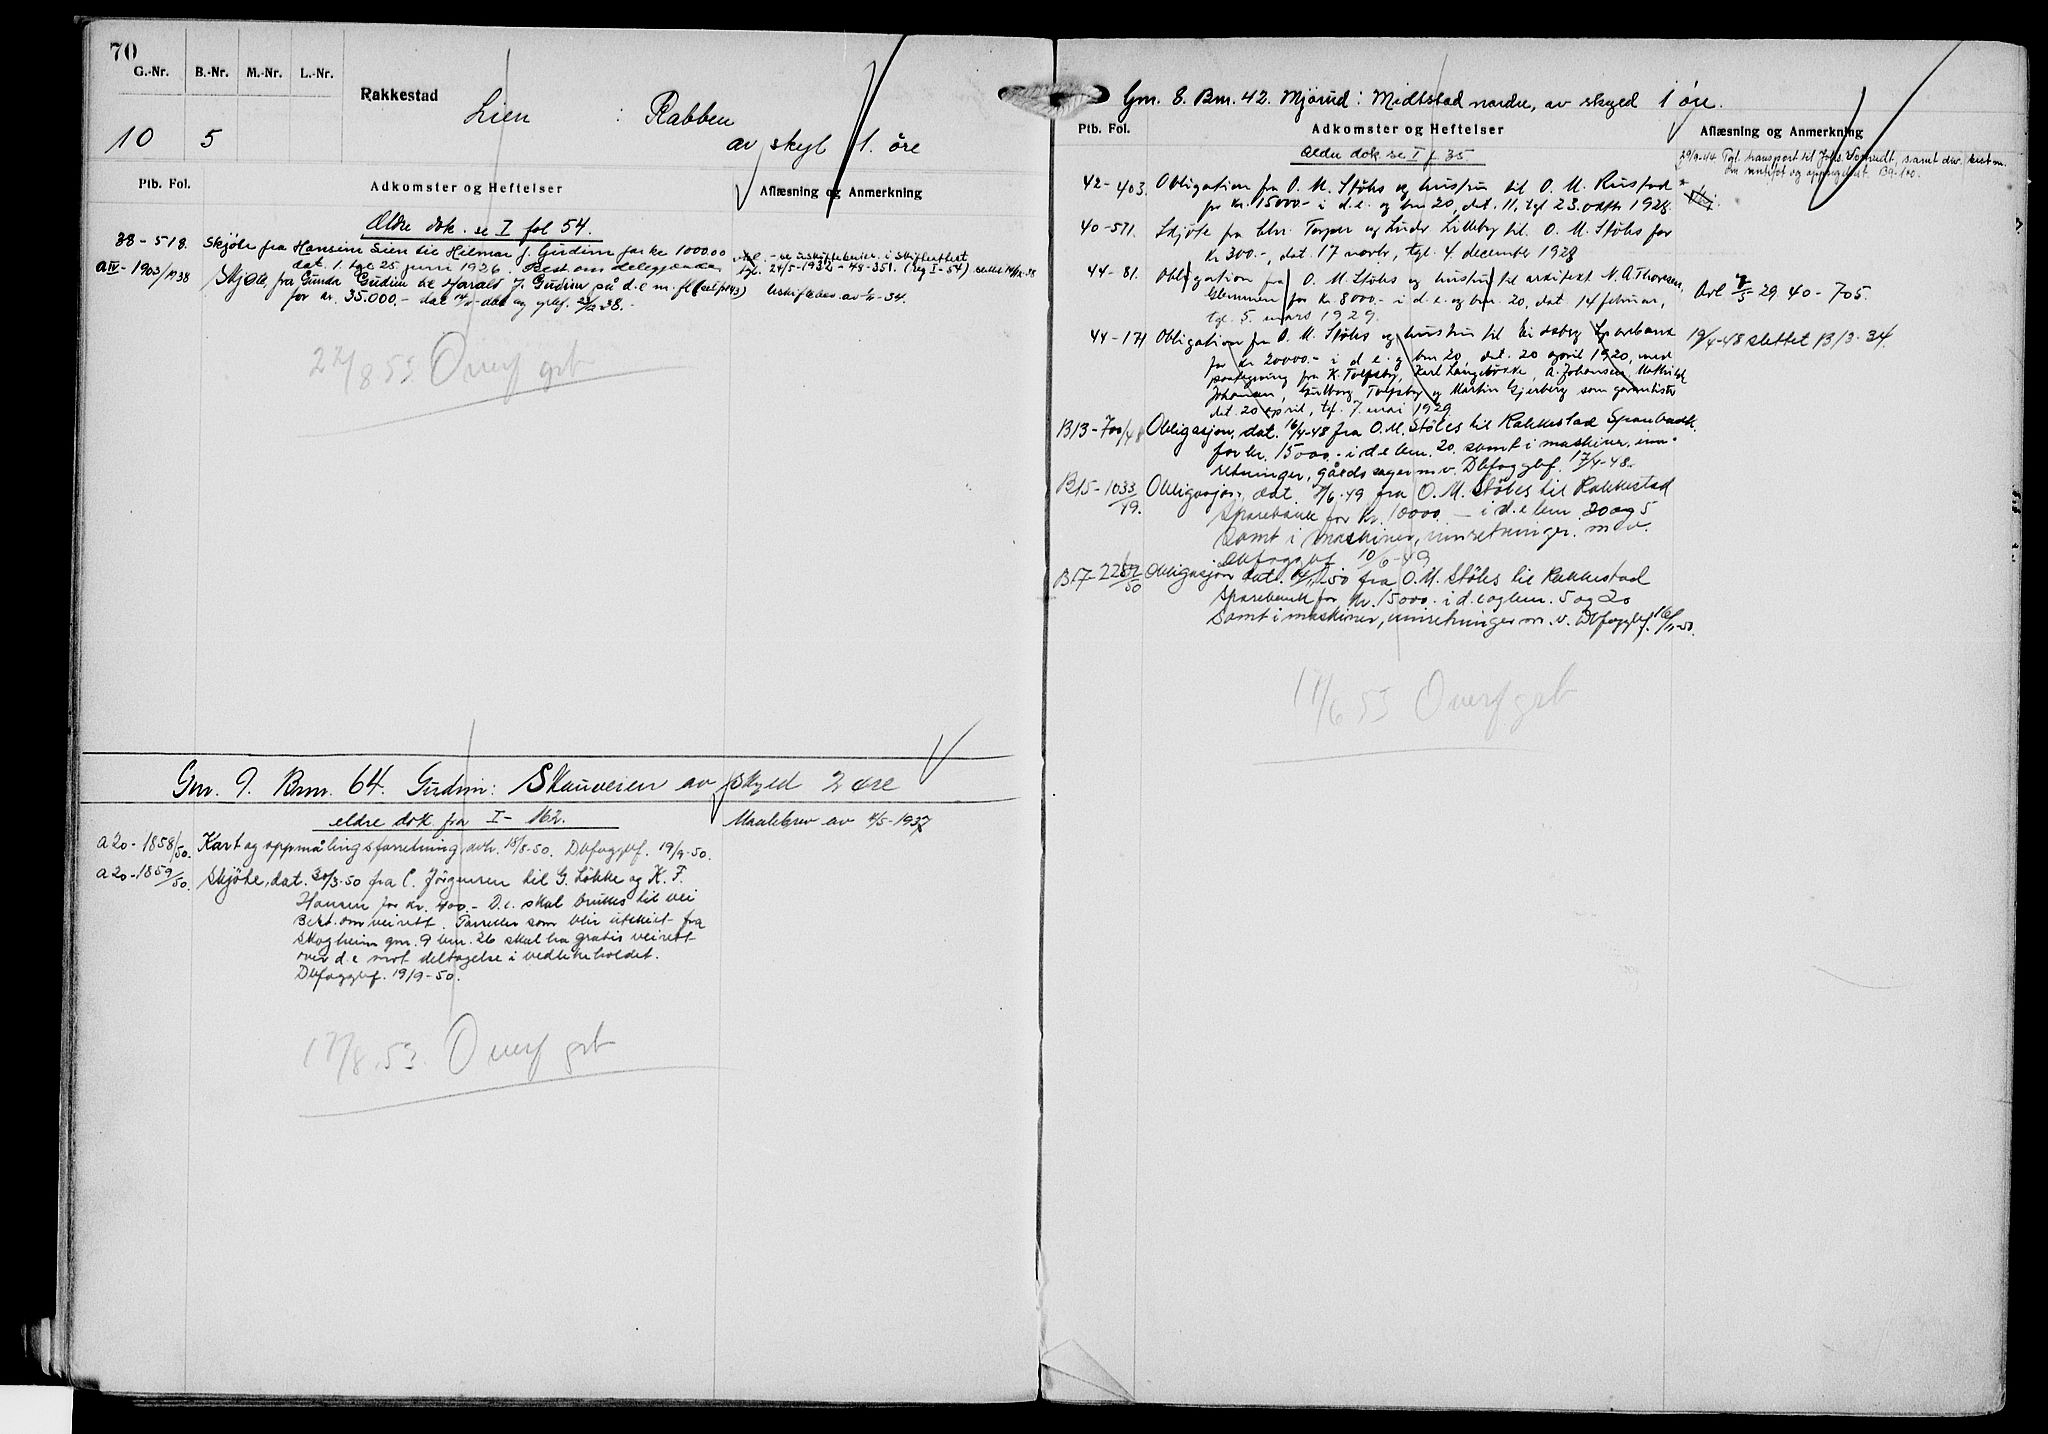 70
G.-Nr. B.-Nr. M.-Nr. L.-Nr.
Rakkestad
Lien : Rabben
10 5 av skyld 1. öre
Ptb. Fol. Adkomster og Heftelser Aflæsning og Anmerkning
Ældre dok. se I fol 54.
38 - 518. Skjöte fra Hansine Lien til Hilmar J. Gudim for kr 1000.00
dat. 1. tgl 25 juni 1926. Best om delegjerder
tgl. 24/5-1932 - 48-351. (reg I-54)
A IV - 1903/1938 Skjöte, fra Gunda Gudim til Harald J. Gudim på d.e m. fl
for kr. 35.000,-
22/8 53 Overf grb
Gnr. 9. Bnr. 64. Gudim: Skauveien av skyld 2 øre
eldre dok fra I - 162. Maalebrev av 4/5-1937
a 20 - 1858/50. Kart og oppmålingsforretning avh. 18/8-50. Dbfoggbf. 19/9-50.
a 20 - 1859/50. Skjöte, dat. 30/3-50 fra C. Jörgensen til G. Løkke og K. F.
Hansen for kr. 400.- D.e. skal brukes til vei
Best. om veirett. Parseller som blir utskilt fra
Skogheim gnr. 9 bnr. 26 skal ha gratis veirett
over d.e mot deltagelse i vedlikeholdet.
Dbfoggbf. 19/9-50.
17/8.53. Overf grb
Gnr. 8. Bnr. 42. Mjörud: Midtstad nordre, av skyld 1 öre.
Ptb. Fol. Adkomster og Heftelser Aflæsning og Anmerkning
Ældre dok se I f 35
42 - 403. Obligation fra O. M. Stöhs og hustru til O. M. Rustad
for kr. 15000.- i d.e. og bnr 20, dat. 11, tgl 23. oktbr 1928.
40 - 571. Skjöte fra Chr. Torper og Luder Lilleby til O. M. Stöhs for
kr 300.-, dat. 17 novbr, tgl. 4 december 1928
44 - 81. Obligation fra O. M. Stöhs og hustru til arkitekt N. A. Thoresen,
Glemmen for kr 8000.- i d.e. og bnr. 20, dat 14 februar,
tgl. 5. mars 1929.
29. 40 - 705.
44 - 171 Obligation fra O. M. Stöhs og hustru til Eidsberg Sparebank
for kr 20000.- i d.e. og bnr 20, dat. 20 april 1920, med
paategning fra K. Tolfsby, Karl Langebække, A. Johansen, Mathilde
Johansen, Gullborg Tolfsby og Martin Gjerberg som garantister
dat. 20 april, tgl. 7. mai 1929
19/4-48 slettet B13-34.
B13 - 700/48 Obligasjon, dat. 16/4-48 fra O. M. Stöhs til Rakkestad Sparebank
for kr. 15000.- i d.e bnr. 20 samt i maskiner, inn-
retninger, gårdssager m.v. Dbfoggbf. 17/4-48.
B15 - 1033/49. Obligasjon, dat. 9/6-49 fra O. M. Stöhs til Rakkestad
Sparebank for kr. 10000.- i d.e bnr. 20 og 5
samt i maskiner, innretninger. m.v.
Dbfoggbf 10/6-49
B17 - 2257/50 Obligasjon dat. 50 fra O. M. Stöhs til Rakkestad
Sparebank for kr. 15000.- i d.e og bnr. 5 og 20
samt i maskiner, innretninger m. v. Dbfoggbf. 16/11-50.
17/6 53 Overf grb